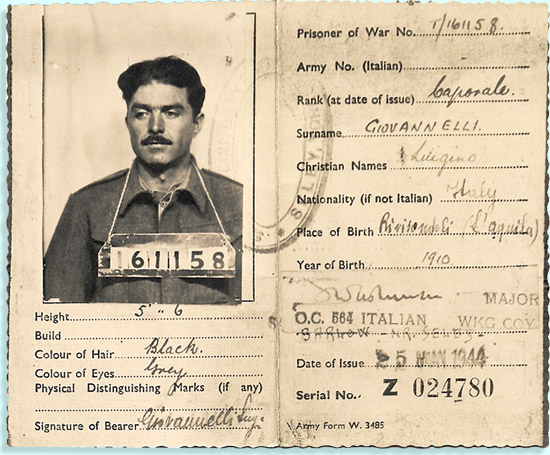 161158
Height 5" 6
Build
Colour of Hair Black.
Colour of Eyes Grey
Physical Distinguishing Marks (if any)
Signature of Bearer Giovannelli Luigi
Prisoner of War No. T/161158.
Army No. (Italian)
Rank (at date of issue) Caporale.
Surname GIOVANNELLI.
Christian Names Luigino
Nationality (if not Italian) Italy
Place of Birth (L'aquila)
Year of Birth 1910
MAJOR
O.C. 564 ITALIAN WKG COY
BARLOW NR. SELBY
Date of Issue 25 MAY 1944
Serial No. Z 024780
Army Form W. 3485
SELBY